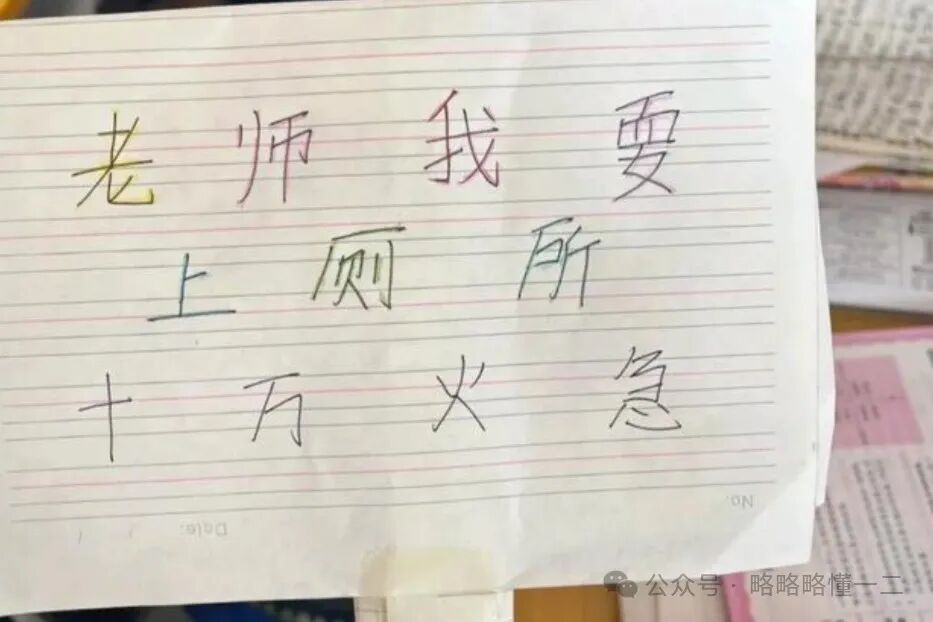 老师我要
上厕所
十万火急
No.
Date:
公众号·略略略懂一二